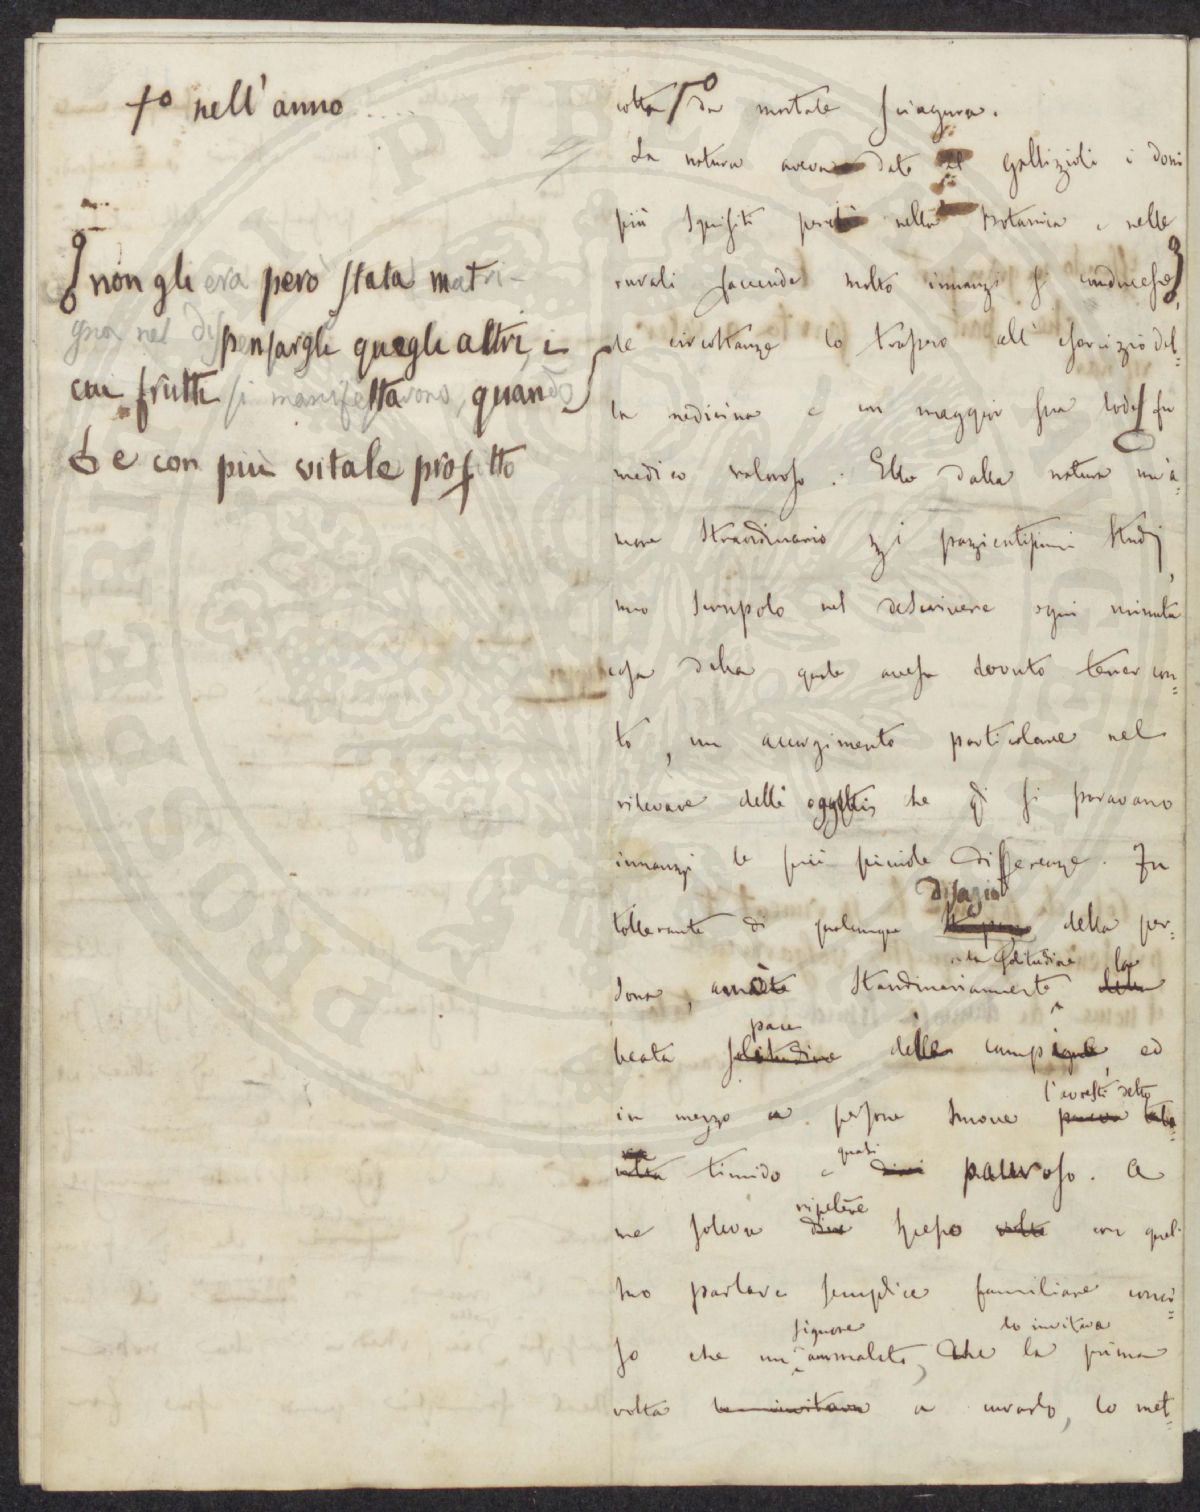 fo nell'anno ....
non gli era però stata matri-
gna nel dispensargli quegli altri, i
cui frutti si manifestarono, quando
e con più vitale profitto
colta da mortale sciagura.
La natura aveva date al Gallizioli i doni
più squisiti perché nella Botanica e nelle
rurali faccende molto innanzi si conducesse,
le circostanze lo trassero all'esercizio del=
la medicina e con maggior sua lode fu
medico valoroso. Ebbe dalla natura un'a=
more straordinario pei pazientissimi studj,
uno scrupolo nel descrivere ogni minuta
cosa della quale avesse dovuto tener con=
to, un accorgimento particolare nel
rilevare delli oggetti, che gli si paravano
innanzi le più picciole differenze. Fu
tollerante di qualunque disagio della per=
sona, amò straordinariamente la solitudine, la
beata solitudine pace delle campagne, ed
in mezzo a persone nuove pareva l'avresti detto
timido e quasi pauroso. A
me soleva dire ripetere spesso volte con quel
suo parlare semplice familiare conci=
so che un signore ammalato, che lo invitava la prima
volta lo invitava a curarlo, lo met=